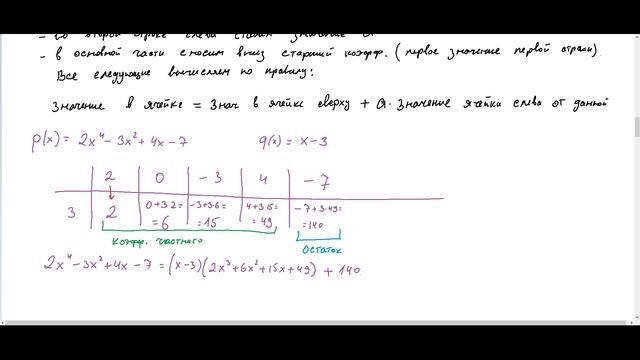 - во второй строке слева ставим значение a
- в основной части сносим вниз старший коэфф. (первое значение первой строки).
Все следующие вычисляем по правилу:
Значение в ячейке = знач в ячейке сверху + a · значение ячейки слева от данной
p(x) = 2x⁴ - 3x² + 4x - 7 q(x) = x - 3
2 0 - 3 4 - 7
3 2 0+3·2= =6 -3+3·6= =15 4+3·15= =49 -7+3·49= =140
коэфф. частного остаток
2x⁴ - 3x² + 4x - 7 = (x-3)(2x³+6x²+15x+49) + 140.